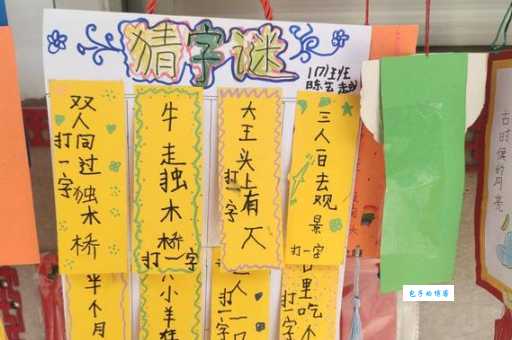 猜字谜
班
双人同过独木桥
打一字
牛走独木桥
打一字
大王头上有人
打一字
三人一日去观景
打一字
半个月
小羊
人一口
打一字
里吃个
打一
古时候的月亮